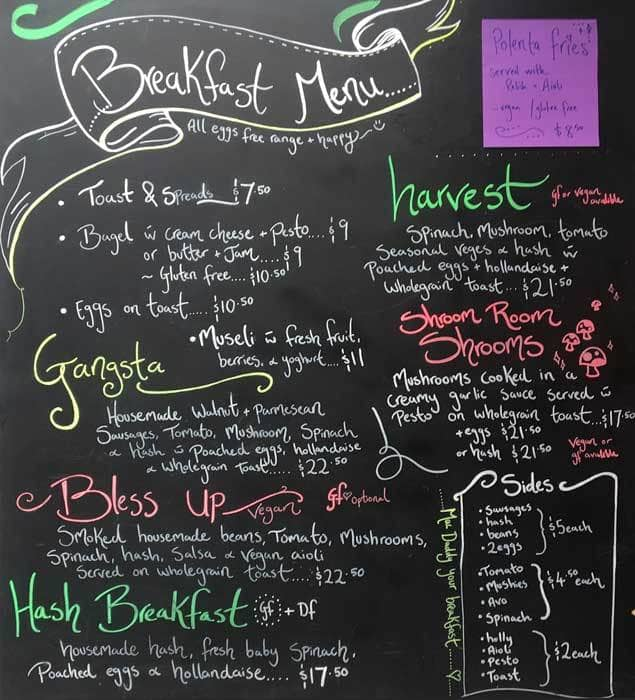 Breakfast Menu......
All eggs free range + happy
Polenta fries
served with
Relish + Aioli
- vegan / gluten free
$8.50
• Toast & Spreads $7.50
• Bagel w cream cheese + Pesto.... $9
or butter + Jam.... $9
~ Gluten free.... $10.50
• Eggs on toast..... $10.50
• Museli w fresh fruit,
berries, & yoghurt.... $11
Gangsta
Housemade Walnut + Parmesean
Sausages, Tomato, Mushroom, Spinach
& Hash w Poached eggs, hollandaise
& wholegrain Toast..... $22.50
Bless Up Vegan gf optional
Smoked housemade beans, Tomato, Mushrooms,
Spinach, hash, Salsa & vegan aioli
Served on wholegrain toast.... $22.50
Hash Breakfast gf + Df
housemade hash, fresh baby Spinach,
Poached eggs & hollandaise.... $17.50
harvest gf or vegan
available
Spinach, Mushroom, tomato
Seasonal veges & hash w
Poached eggs + hollandaise +
wholegrain toast... $21.50
Shroom Room
Shrooms
Mushrooms cooked in a
creamy garlic sauce served w
Pesto on wholegrain toast...$17.50
+eggs $21.50
or hash $21.50
vegan or
gf available
......Mac Daddy your breakfast......
Sides
• Sausages
• hash
• beans
• 2eggs
$5 each
• Tomato
• Moshies
• Avo
• Spinach
$4.50 each
• holly
• Aioli
• Pesto
• Toast
$2 each